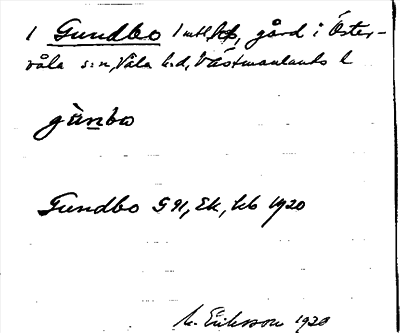 1 Gundbo 1 mtl, gård i Öster-
våla s:n, Våla h:d, Västmanlands l
gùnbo
Gundbo G 91, Ek, kb 1920
M. Eriksson 1920